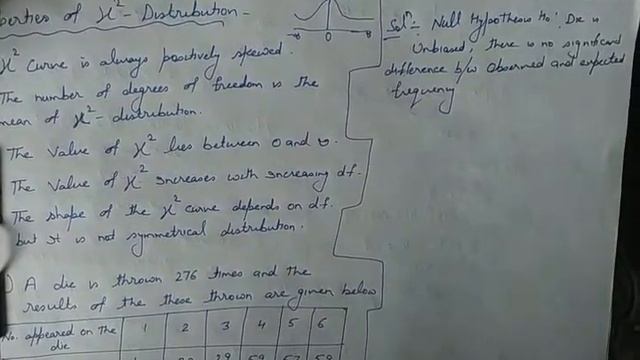 perties of χ² - Distribution -
χ² curve is always positively skewed.
The number of degrees of freedom is the
mean of χ² - distribution.
The value of χ² lies between 0 and ∞.
The value of χ² increases with increasing df.
The shape of the χ² curve depends on df.
but it is not symmetrical distribution.
) A die is thrown 276 times and the
results of the these thrown are given below
No. appeared on the die 1 2 3 4 5 6
29 59 57 59
-∞ 0 ∞
Solⁿ:- Null Hypothesis H₀: Die is
Unbiased, there is no significant
difference b/w observed and expected
frequency